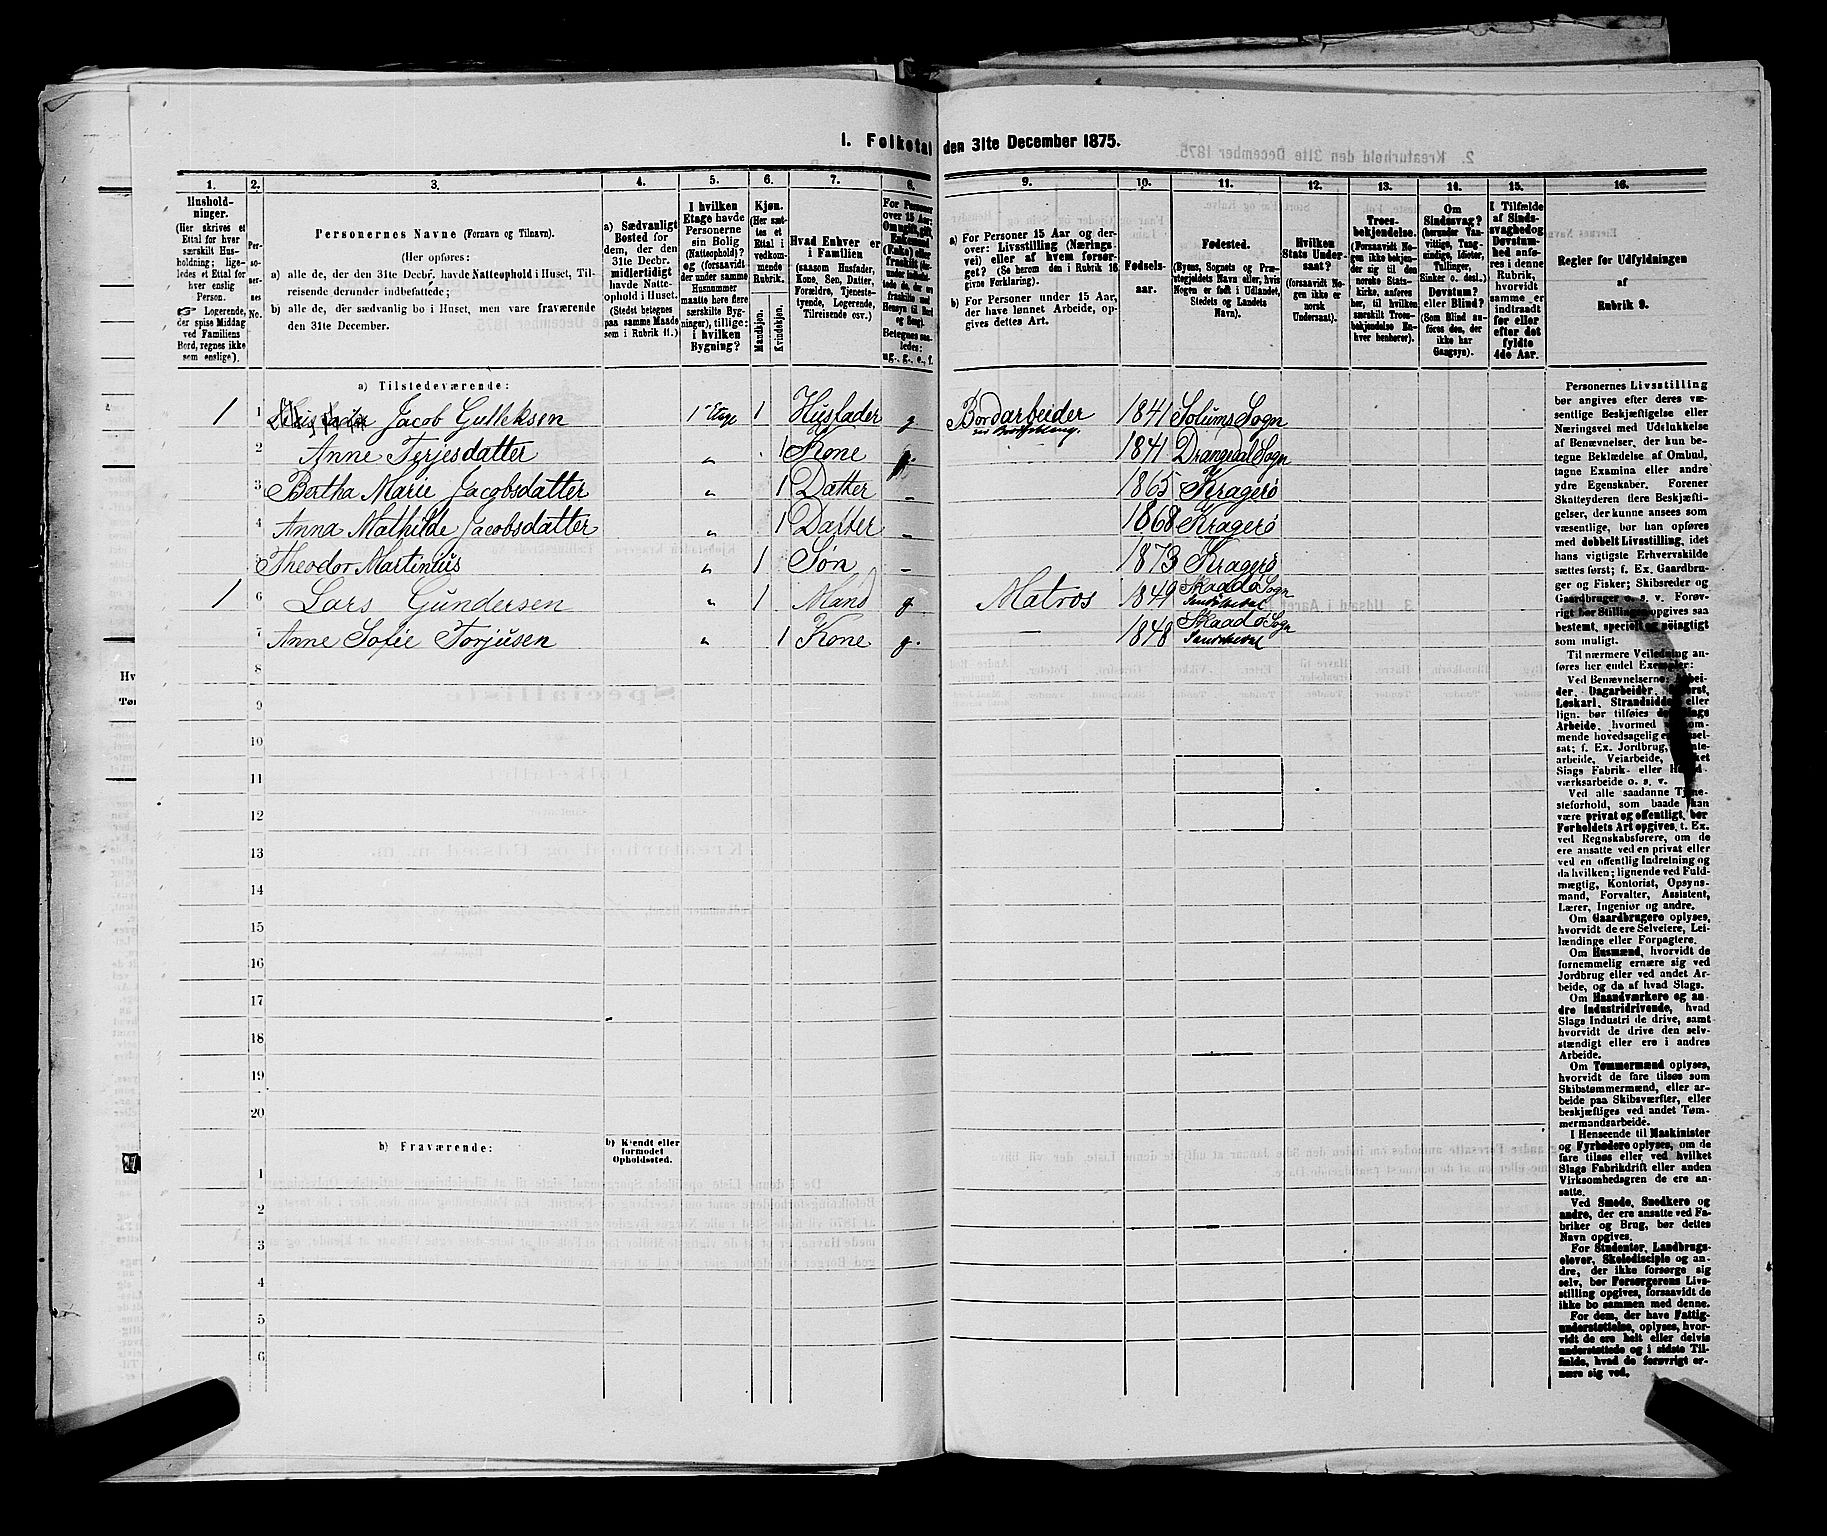 1. Folketal den 31te December 1875.
1. 2. 3. 4. 5. 6. 7. 8. 9. 10. 11. 12. 13. 14. 15. 16.
Hushold-
ninger.
(Her skrives et
Ettal for hver
særskilt Hus-
holdning; lige-
ledes et Ettal for
hver enslig
Person.
☞ Logerende,
der spise Middag
ved Familiens
Bord, regnes ikke
som enslige).
Per-
so-
ner-
nes
No.
Personernes Navne (Fornavn og Tilnavn).
(Her opføres:
a) alle de, der den 31te Decbr. havde Natteophold i Huset, Til-
reisende derunder indbefattede;
b) alle de, der sædvanlig bo i Huset, men vare fraværende
den 31te December.
a) Sædvanligt
Bosted for
dem, der den
31te Decbr.
midlertidigt
havde Natte-
ophold i Huset.
(Stedet betegnes
paa samme Maade
som i Rubrik 11.)
I hvilken
Etage havde
Personerne
sin Bolig
(Natteophold)?
og (forsaavidt
der under samme
Husnummer
maatte høre flere
særskilte Byg-
ninger), tillige:
i hvilken
Bygning?
Kjøn.
(Her sæt-
tes et
Ettal i
vedkom-
mende
Rubrik.
Mandkjøn.
Kvindekjøn.
Hvad Enhver er
i Familien
(saasom Husfader,
Kone, Søn, Datter,
Forældre, Tjeneste-
tyende, Logerende,
Tilreisende osv.)
For Personer
over 15 Aar:
Om ugift, gift,
Enkemand
(Enke) eller
fraskilt
Betegnes saa-
ledes:
ug., g., e., f.
a) For Personer 15 Aar og der-
over: Livsstilling (Nærings-
vei) eller af hvem forsør-
get? (Se herom den i Rubrik 16
givne Forklaring).
b) For Personer under 15 Aar,
der have lønnet Arbeide, op-
gives dettes Art.
Fødsels-
aar.
Fødested.
(Byens, Sognets og Præ-
stegjeldets Navn eller, hvis
Nogen er født i Udlandet,
Stedets og Landets
Navn).
Hvilken
Stats Under-
saat?
(forsaavidt No-
gen ikke er
norsk
Undersaat).
Troes-
bekjendelse.
(Forsaavidt No-
gen ikke bekjen-
der sig til den
norske Stats-
kirke, anføres
her, til hvilken
særskilt Troes-
bekjendelse En-
hver henhører).
Om
Sindssvag?
(herunder Van-
vittige, Tung-
sindige, Idioter,
Tullinger,
Sinker o. desl.)
Døvstum?
eller Blind?
(Som Blind an-
føres den, der
ikke har
Gangsyn).
I Tilfælde
af Sinds-
svaghed og
Døvstum-
hed anfø-
res i denne
Rubrik,
hvorvidt
samme er
indtraadt
før eller
efter det
fyldte
4de Aar.
Regler for Udfyldningen
af
Rubrik 9.
a) Tilstedeværende:
1 1 Jacob Gulleksen 1 Etage 1 Husfader g Bordarbeider 1841 Solums Sogn
2 Anne Terjesdatter " 1 Kone 1841 Drangedal Sogn
3 Bertha Marie Jacobsdatter " 1 Datter – 1865 Kragerø
4 Anna Mathilde Jacobsdatter " 1 Datter – 1868 Kragerø
5 Theodor Martinius " 1 Søn – 1873 Kragerø
1 6 Lars Gundersen " 1 Mand g Matros 1849 Skaadø Sogn
Sandøkedal
7 Anne Sofie Torjusen " 1 Kone g. — 1848 Skaadø Sogn
Sandøkedal
8
9
10
11
12
13
14
15
16
17
18
19
20
b) Fraværende:
b) Kjendt eller
formodet
Opholdssted.
1
2
3
4
5
6
Personernes Livsstilling
bør angives efter deres væ-
sentlige Beskjæftigelse eller
Næringsvei med Udelukkelse
af Benævnelser, der kun be-
tegne Beklædelse af Ombud,
tagne Examina eller andre
ydre Egenskaber. Forener
Skatteyderen flere Beskjæfti-
gelser, der kunne ansees som
væsentlige, bør han opføres
med dobbelt Livsstilling, idet
hans vigtigste Erhvervskilde
sættes først; f. Ex. Gaardbru-
ger og Fisker; Skibsreder og
Gaardbruger o. s. v. Forøv-
rigt bør Stillingen opgives saa
bestemt, specielt og nøiagtigt
som muligt.
Til nærmere Veiledning an-
føres her endel Exempler:
Ved Benævnelserne: Arbei-
der, Dagarbeider,
Løskarl, Strandsidder eller
lign. bør tilføies
Arbeide, hvormed
mende hovedsagelig
sat; f. Ex. Jordbrug,
arbeide, Veiarbeide,
Slags Fabrik- eller
værksarbeide o. s. v.
Ved alle saadanne Tjene-
steforhold, som baade kan
være privat og offentligt, bør
Forholdets Art opgives, t. Ex.
ved Regnskabsførere, om de
ere ansatte ved en privat eller
ved en offentlig Indretning og
da hvilken; lignende ved Fuld-
mægtig, Kontorist, Opsyns-
mand, Forvalter, Assistent,
Lærer, Ingeniør og andre.
Om Gaardbrugere oplyses,
hvorvidt de ere Selveiere, Lei-
lændinge eller Forpagtere.
Om Husmænd, hvorvidt de
fornemmelig ernære sig ved
Jordbrug eller ved andet Ar-
beide, og da af hvad Slags.
Om Haandværkere og an-
dre Industridrivende, hvad
Slags Industri de drive, samt
hvorvidt de drive den selv-
stændigt eller ere i andres
Arbeide.
Om Tømmermænd oplyses,
hvorvidt de fare tilsøs som
Skibstømmermænd, eller ar-
beide paa Skibsværfter, eller
beskjæftiges ved andet Tøm-
mermandsarbeide.
I Henseende til Maskinister
og Fyrbødere oplyses, om de
fare tilsøs eller ved hvilket
Slags Fabrikdrift eller anden
Virksomhedsgren de ere an-
satte.
Ved Smede, Snedkere og
andre, der ere ansatte ved Fa-
briker og Brug, bør dettes
Navn opgives.
For Studenter, Landbrugs-
elever, Skoledisciple og an-
dre, der ikke forsørge sig
selv, bør Forsørgerens Livs-
stilling opgives, forsaavidt de
ikke bo sammen med denne.
For dem, der have Fattig-
understøttelse, oplyses, hvor-
vidt de ere helt eller delvis
understøttede og i sidste Til-
fælde, hvad de forøvrigt er-
nære sig ved.